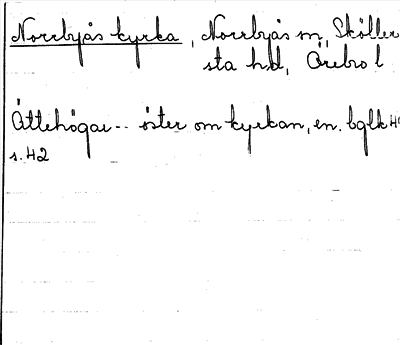 Norrbyås kyrka, Norrbyås sn, Sköller
sta hd, Örebro l
Ättehögar -- öster om kyrkan, en.
s. 42